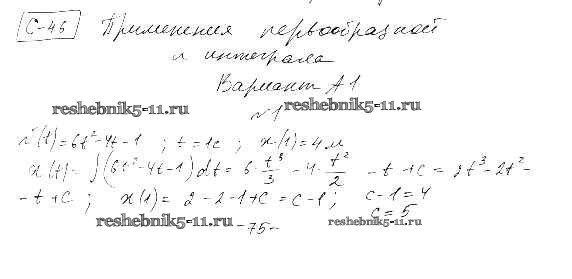 С-46 Применения первообразной
и интеграла
Вариант А1
reshebnik5-11.ru №1 reshebnik5-11.ru
v(t)=6t²-4t-1 ; t=1c ; x(1)=4м
x(t)=∫(6t²-4t-1)dt=6·t³/3-4·t²/2-t+C=2t³-2t²-
-t+C ; x(1)=2-2-1+C=C-1; C-1=4
C=5
reshebnik5-11.ru -75- reshebnik5-11.ru